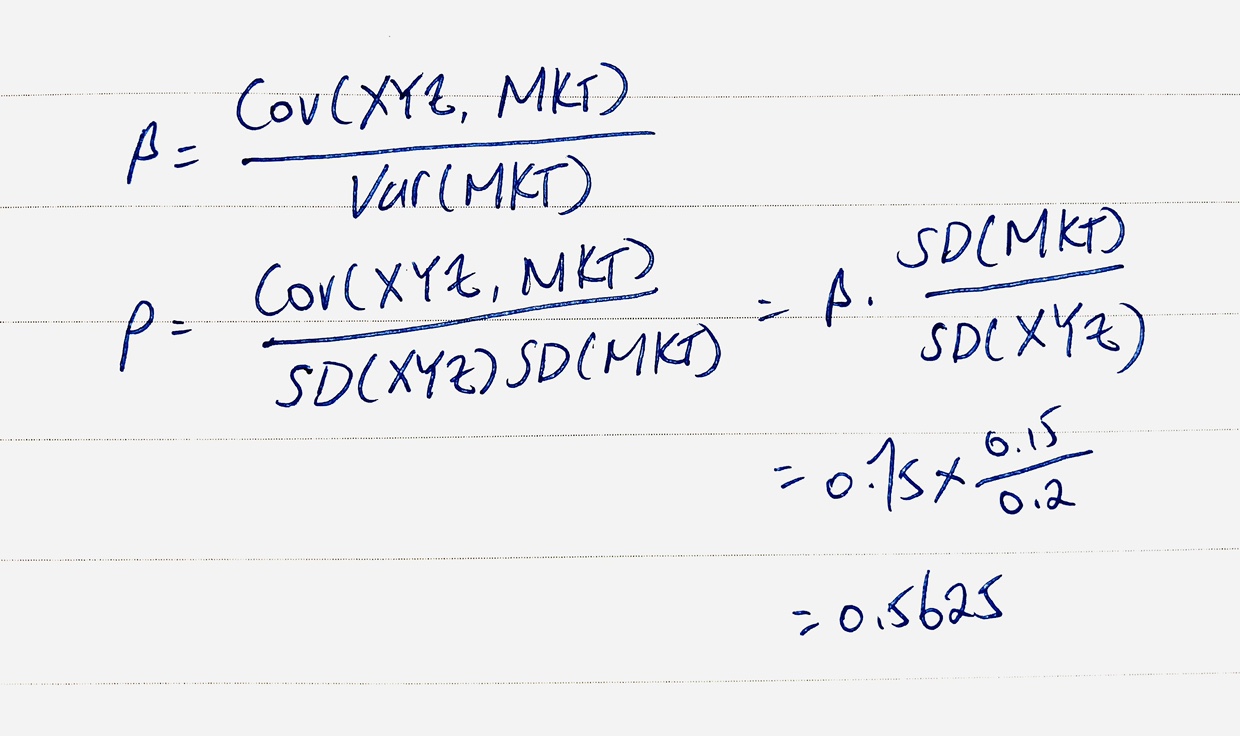 β = Cov(XYZ, MKT) / Var(MKT)
ρ = Cov(XYZ, MKT) / SD(XYZ) SD(MKT) = β · SD(MKT) / SD(XYZ)
= 0.75 × 0.15 / 0.2
= 0.5625